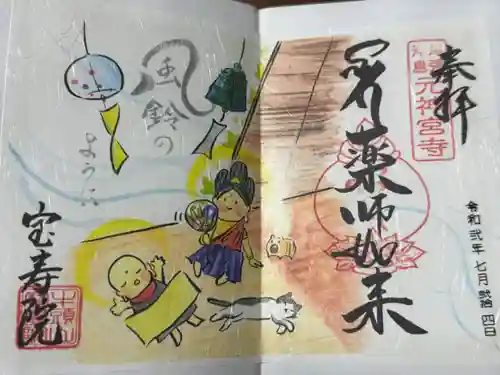 奉拝
島元神宮寺
薬師如来
令和弐年七月弐拾四日
風鈴の
ように
宝寿院